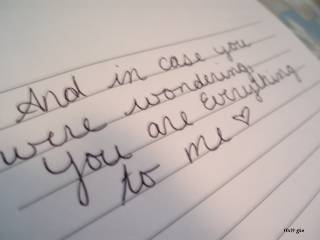 And in case you
were wondering,
You are Everything
to me♡